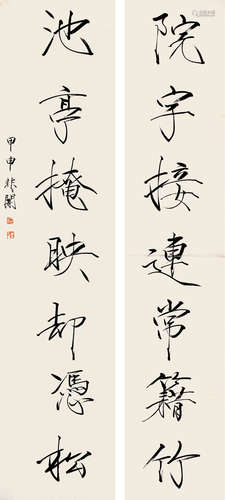 院宇接連常籍竹
池亭掩映却憑松
甲申非闇